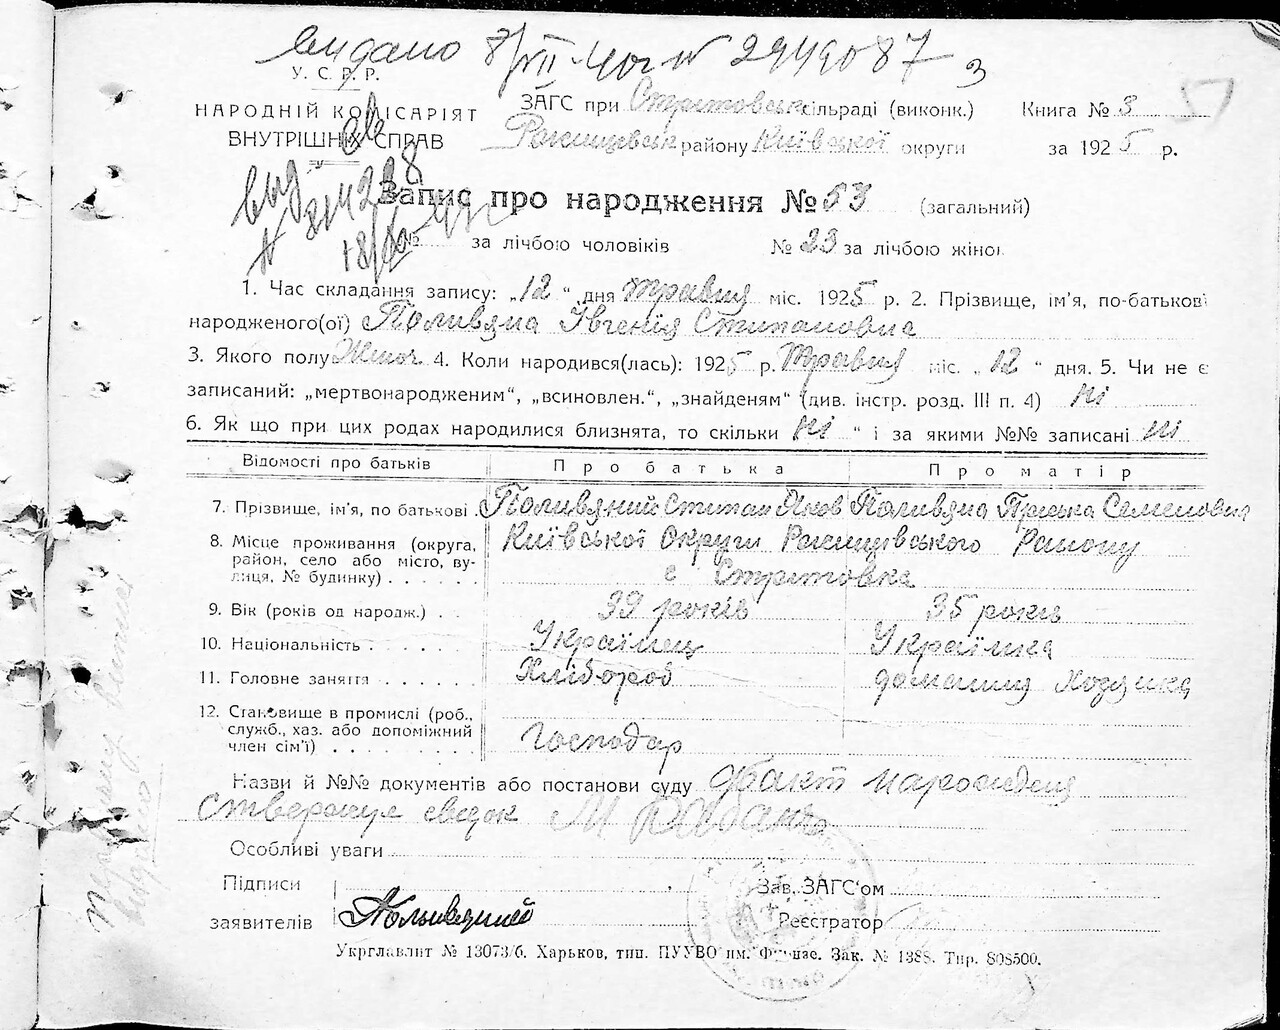 видано 8/VII-40г № 2949087 з
У. С. Р. Р.
НАРОДНІЙ КОМІСАРІЯТ
ВНУТРІШНІХ СПРАВ
ЗАГС при Стритовськ сільраді (виконк.) Книга № 3
Ржищевськ району Київської округи за 1925 р.
Запис про народження № 53 (загальний)
№ за лічбою чоловіків № 23 за лічбою жінок
1. Час складання запису: „12“ дня травня міс. 1925 р. 2. Прізвище, ім'я, по-батькові
народженого(ої) Поливяна Івгенія Стипановна
3. Якого полу Жіноч 4. Коли народився(лась): 1925 р. Травня міс. „12“ дня. 5. Чи не є
записаний: „мертвонародженим“, „всиновлен.“, „знайденям“ (див. інстр. розд. III п. 4) Ні
6. Як що при цих родах народилися близнята, то скільки Ні “ і за якими №№ записані ні
Відомості про батьків Про батька Про матір
7. Прізвище, ім'я, по батькові Поливяний Стипан Яков Поливяна Пріська Семеновна
8. Місце проживання (округа, район, село або місто, вулиця, № будинку) Київської Округи Ржищівського Району
с Стритовка
9. Вік (років од народж.) 39 років 35 років
10. Національність Українец Українка
11. Головне заняття Хлібороб домашня Хозяйка
12. Становище в промислі (роб., служб., хаз. або допоміжний член сім'ї) Господар
Назви й №№ документів або постанови суду
Стверджує свідок М
Особливі уваги
Підписи Зав. ЗАГС'ом
заявителів Поливяний Реєстратор
Укрглавлит № 13073/б. Харьков, тип. ПУУВО им. Фрунзе. Зак. № 1388. Тир. 808500.